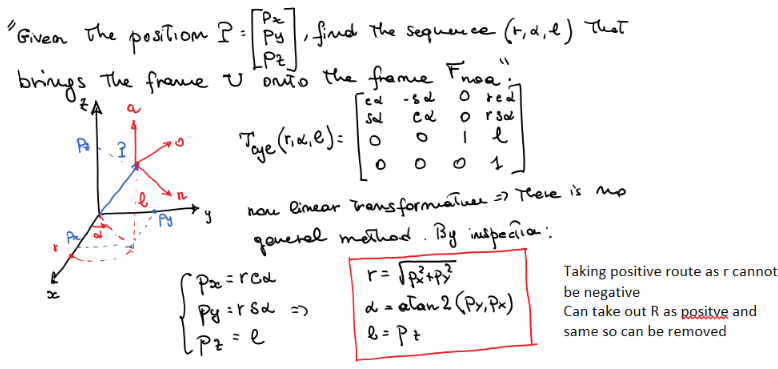 "Given the position P = [Px Py Pz], find the sequence (r, α, l) that
brings the frame U onto the frame Fnoa".
z
a
Pz
P
o
n
l
r
Px
α
Py
y
x
Tcyl (r, α, l) = [cα -sα 0 rcα
sα cα 0 rsα
0 0 1 l
0 0 0 1]
non linear transformation => There is no
general method. By inspection:
Px = rcα
Py = rsα =>
Pz = l
r = √Px²+Py²
α = atan2 (Py, Px)
l = Pz
Taking positive route as r cannot
be negative
Can take out R as positve and
same so can be removed